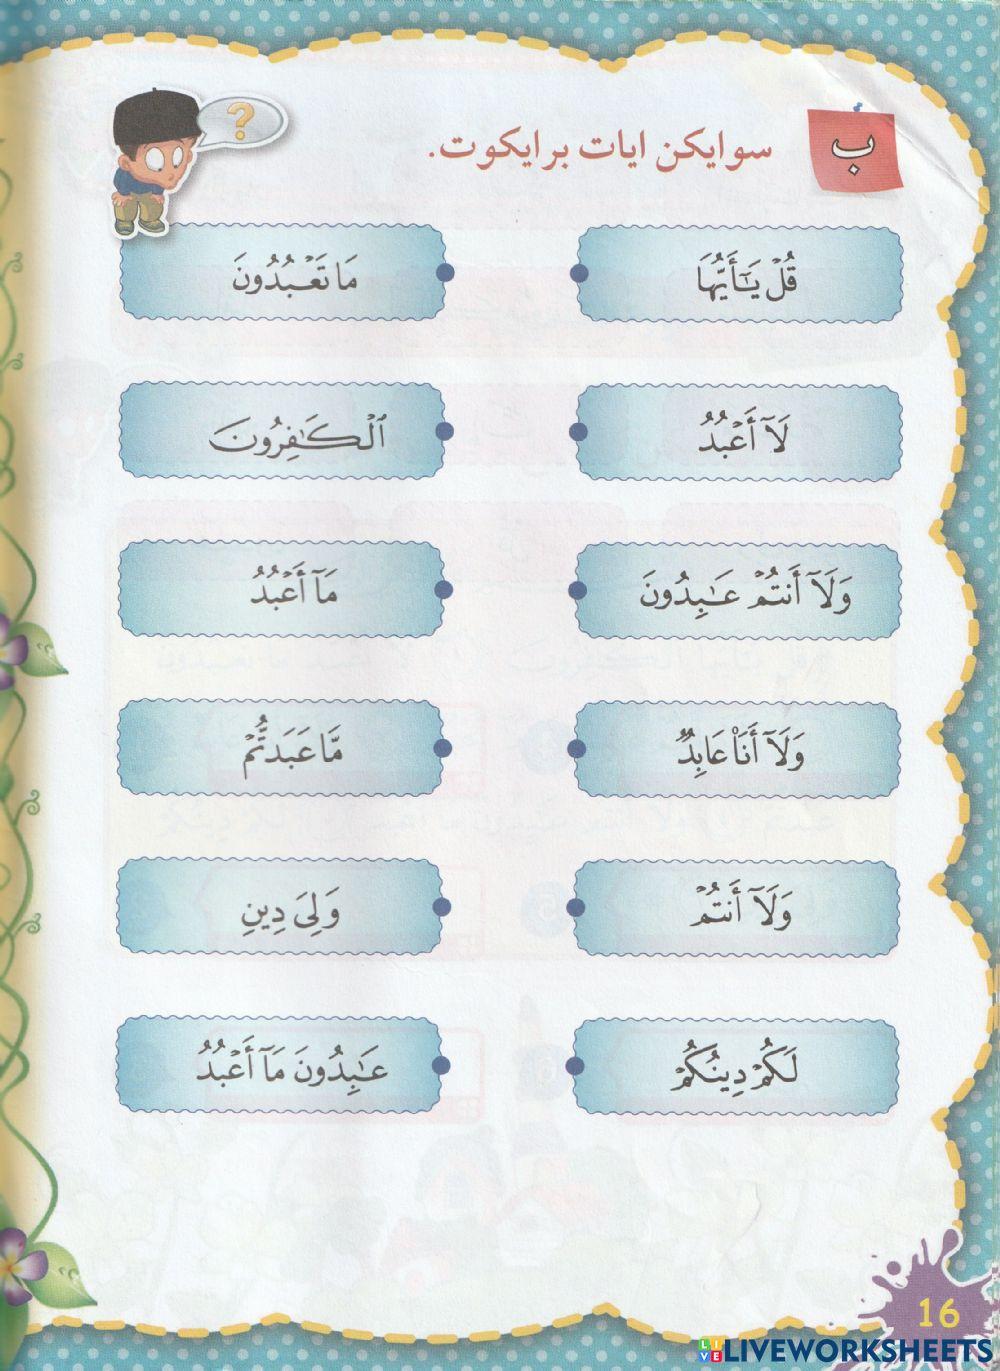 ب
سوايكن ايات برايكوت.
?
قُلۡ يَـٰٓأَيُّهَا
مَا تَعۡبُدُونَ
لَآ أَعۡبُدُ
ٱلۡكَـٰفِرُونَ
وَلَآ أَنتُمۡ عَـٰبِدُونَ
مَآ أَعۡبُدُ
وَلَآ أَنَا۠ عَابِدٌ
مَّا عَبَدتُّمۡ
وَلَآ أَنتُمۡ
وَلِىَ دِينِ
لَكُمۡ دِينُكُمۡ
عَـٰبِدُونَ مَآ أَعۡبُدُ
16
LIVE LIVEWORKSHEETS